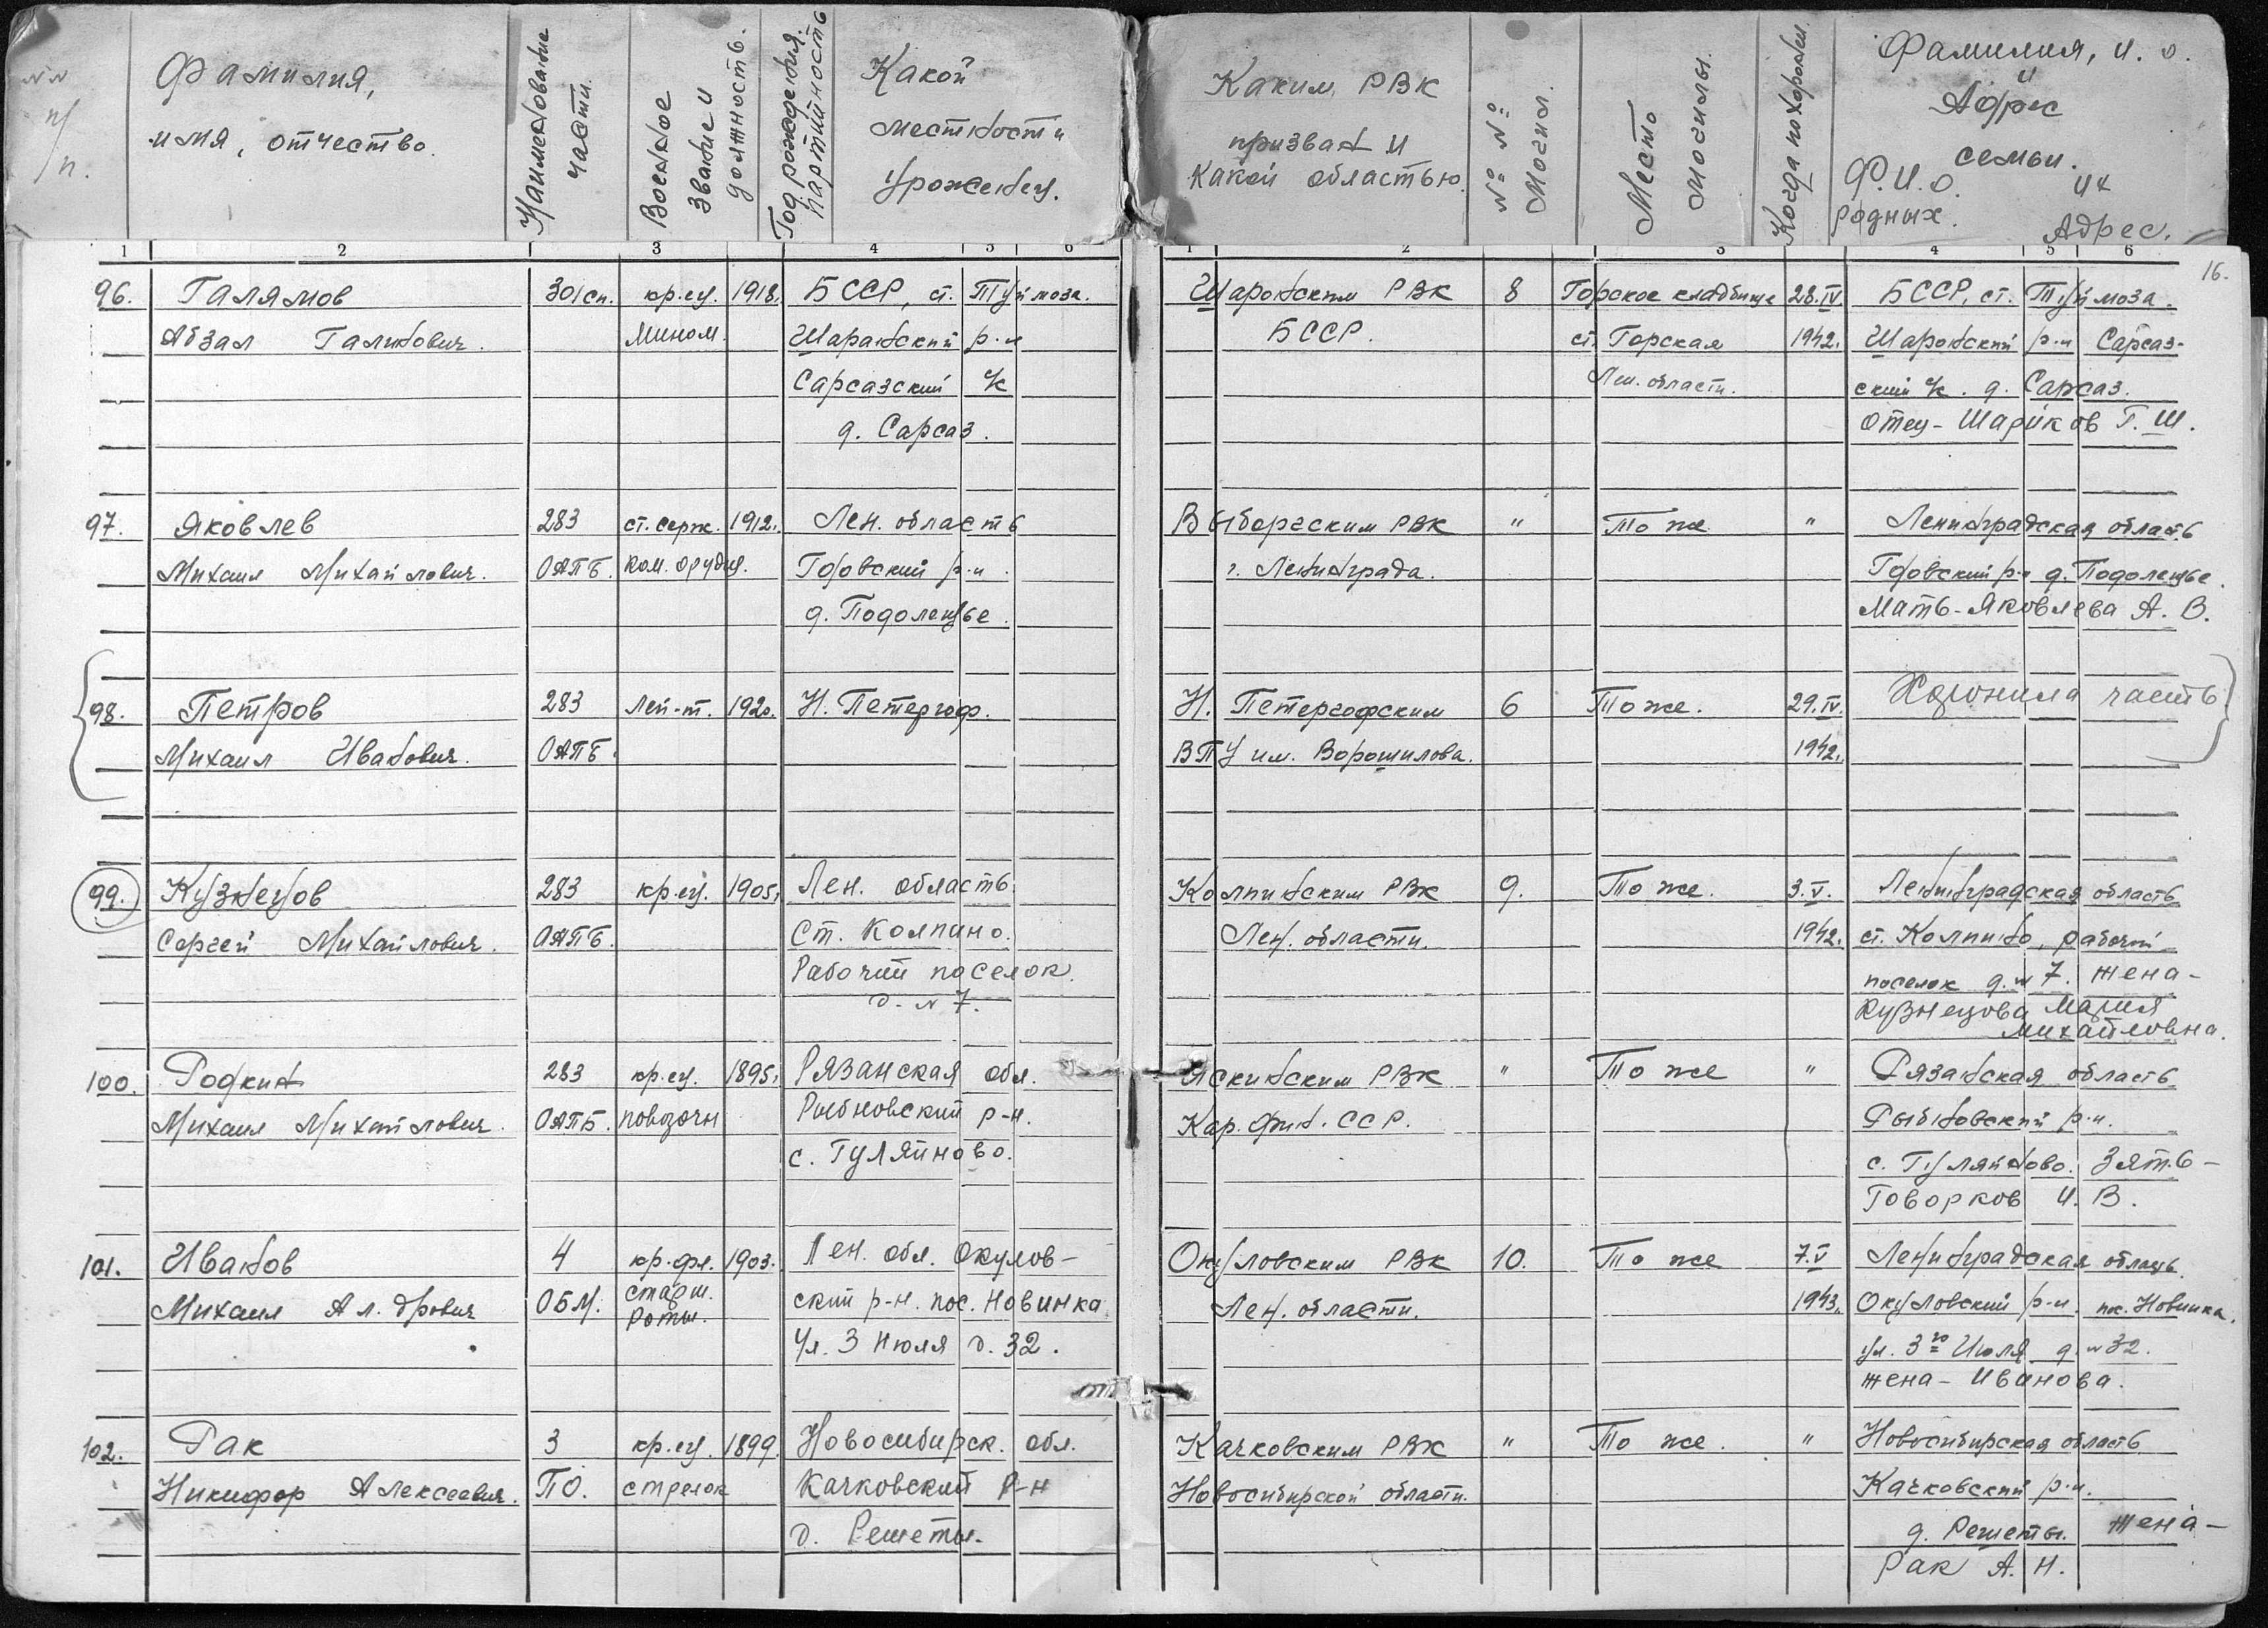 №№ п/п.
Фамилия,
имя, отчество.
Наименование части.
Военное звание и должность.
Год рождения. партийность
Какой
местности
уроженец.
Каким РВК
призван и
какой областью.
№№ Могил.
Место Могилы.
Когда похоронен.
Фамилия, и. о.
и
Адрес
семьи.
Ф.И.О. их
родных. Адрес.
1 2 3 4 5 6 1 2 3 4 5 6
16.
96. Галямов 301 сп. кр.ец. 1918. БССР, ст. Туймоза. Шаронским РВК 8 Горское кладбище 28.IV. БССР, ст. Туймоза.
Абзал Галинович. Мином. Шаранский р-н БССР. ст. Горская 1942. Шаронский р-н Сарсаз-
Сарсазский с/с Лен. области. ский с/с. д. Сарсаз.
д. Сарсаз. Отец - Шариков Г. Ш.
97. Яковлев 283 ст. серж. 1912. Лен. область Выборгским РВК " То же " Ленинградская область
Михаил Михайлович. ОАПБ. ком. орудия. Гдовский р-н. г. Ленинграда. Гдовский р-н д. Подолещье.
д. Подолещье. Мать - Яковлева А. В.
98. Петров 283 Лей-т. 1920. Н. Петергоф. Н. Петергофским 6 То же. 29.IV. Хоронила часть
Михаил Иванович. ОАПБ. ВПУ им. Ворошилова. 1942.
99. Кузнецов 283 кр.ец. 1905. Лен. область Колпинским РВК 9. То же. 3.V. Ленинградская область
Сергей Михайлович. ОАПБ. Ст. Колпино. Лен. области. 1942. ст. Колпино, рабочий
Рабочий поселок. поселок д. № 7. Жена -
д. № 7. Кузнецова Мария
Михайловна.
100. Родкин 283 кр.ец. 1895. Рязанская обл. Яскинским РВК " То же " Рязанская область
Михаил Михайлович. ОАПБ. повозочн Рыбновский р-н. Кар. Фин. ССР. Рыбновский р-н.
с. Гуляйново. с. Гуляйново. Зять -
Говорков И. В.
101. Иванов 4 кр.фл. 1903. Лен. обл. Окулов- Окуловским РВК 10. То же 7.V Ленинградская область.
Михаил Ал.дрович ОБМ. старш. роты. ский р-н. пос. Новинка Лен. области. 1943. Окуловский р-н. пос. Новинка.
Ул. 3 Июля д. 32. ул. 3го Июля д. № 32.
жена - Иванова.
102. Рак 3 кр.ец. 1899. Новосибирск. обл. Качковским РВК " То же. " Новосибирская область
Никифор Алексеевич. ПО. стрелок Качковский р-н Новосибирской области. Качковский р-н.
д. Решеты. д. Решеты. Жена -
Рак А. Н.